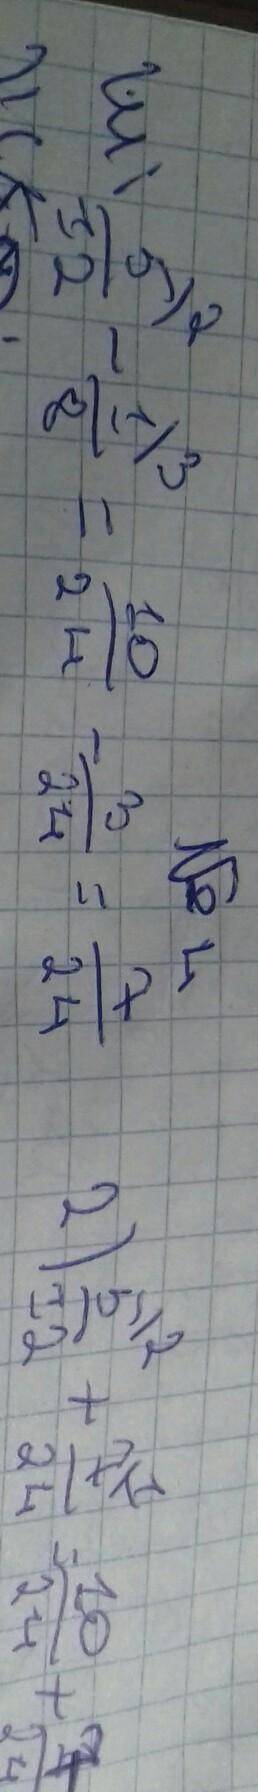 № 4
1) 5/12 \2 - 1/8 \3 = 10/24 - 3/24 = 7/24 2) 5/12 \2 + 7/24 \1 = 10/24 + 7/24